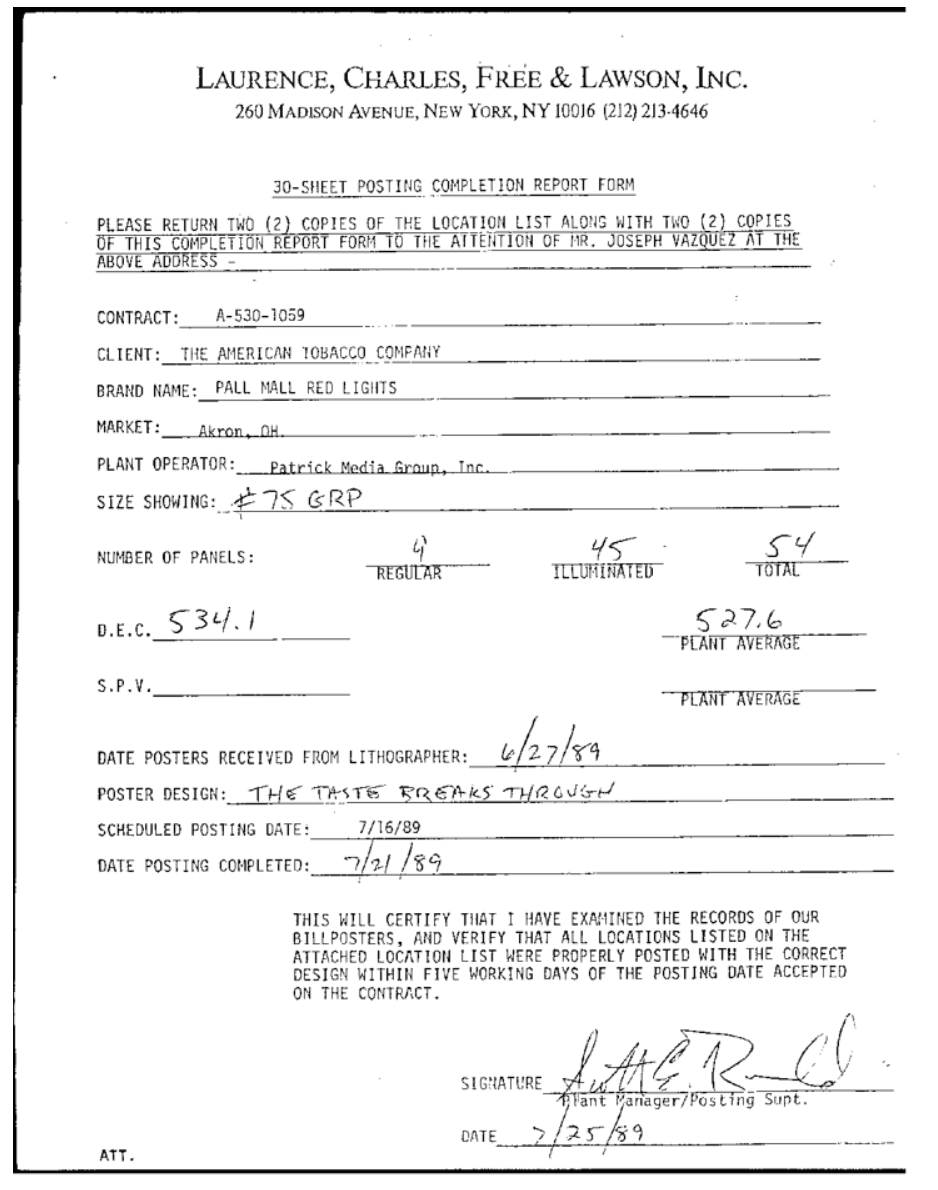 LAURENCE, CHARLES, FREE & LAWSON, INC.
260 MADISON AVENUE, NEW YORK, NY 10016 (212) 213-4646
30-SHEET POSTING COMPLETION REPORT FORM
PLEASE RETURN TWO (2) COPIES OF THE LOCATION LIST ALONG WITH TWO (2) COPIES
OF THIS COMPLETION REPORT FORM TO THE ATTENTION OF MR. JOSEPH VAZQUEZ AT THE
ABOVE ADDRESS -
CONTRACT: A-530-1059
CLIENT: THE AMERICAN TOBACCO COMPANY
BRAND NAME: PALL MALL RED LIGHTS
MARKET: Akron, OH.
PLANT OPERATOR: Patrick Media Group, Inc.
SIZE SHOWING: #75 GRP
NUMBER OF PANELS: 9 45 54
REGULAR ILLUMINATED TOTAL
D.E.C. 534.1 527.6
PLANT AVERAGE
S.P.V.
PLANT AVERAGE
DATE POSTERS RECEIVED FROM LITHOGRAPHER: 6/27/89
POSTER DESIGN: THE TASTE BREAKS THROUGH
SCHEDULED POSTING DATE: 7/16/89
DATE POSTING COMPLETED: 7/21/89
THIS WILL CERTIFY THAT I HAVE EXAMINED THE RECORDS OF OUR
BILLPOSTERS, AND VERIFY THAT ALL LOCATIONS LISTED ON THE
ATTACHED LOCATION LIST WERE PROPERLY POSTED WITH THE CORRECT
DESIGN WITHIN FIVE WORKING DAYS OF THE POSTING DATE ACCEPTED
ON THE CONTRACT.
SIGNATURE
Plant Manager/Posting Supt.
DATE 7/25/89
ATT.